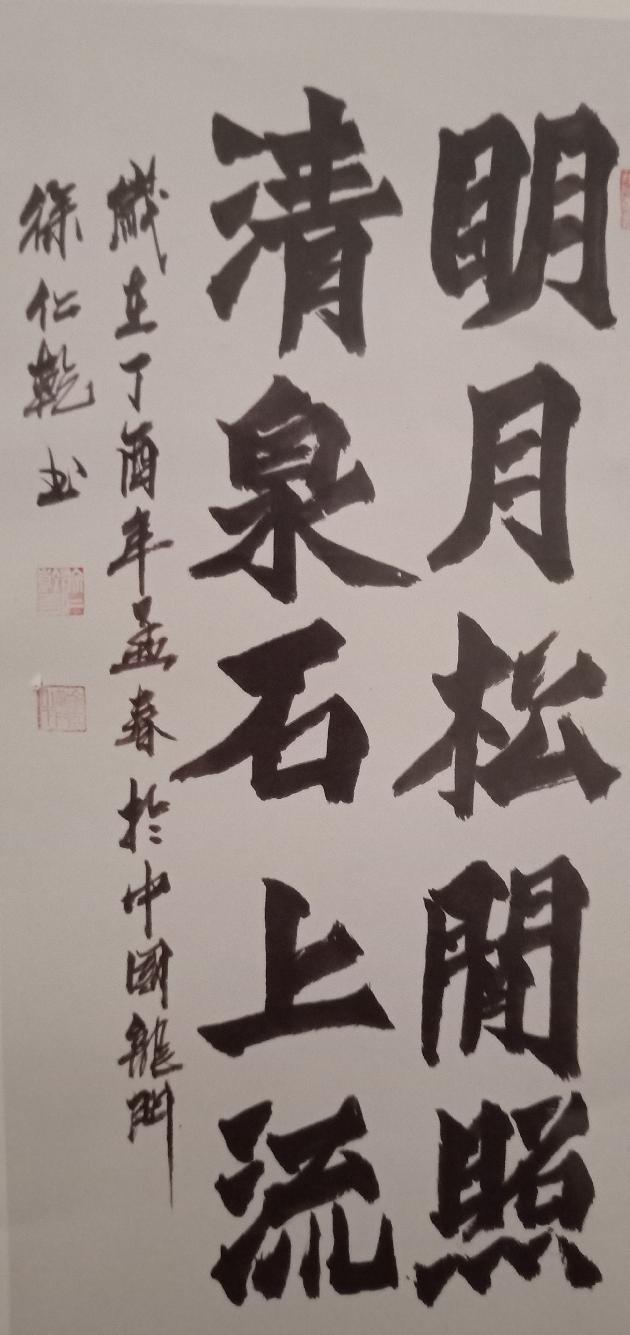 明月松間照
清泉石上流
歲在丁酉年孟春於中國龍門
徐仁乾书